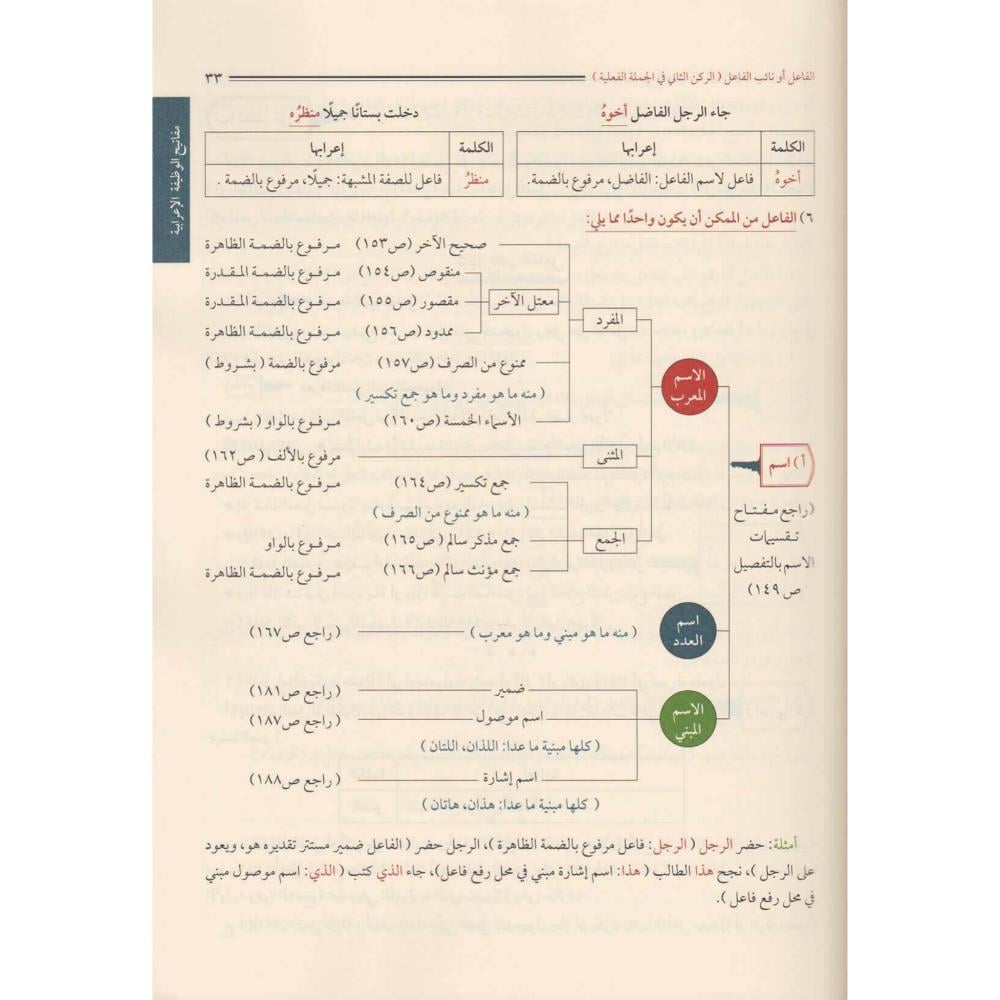 الفاعل أو نائب الفاعل ( الركن الثاني في الجملة الفعلية ) ٣٣
مفاتيح الوظيفة الإعرابية
جاء الرجل الفاضل أخوهُ
الكلمة إعرابها
أخوهُ فاعل لاسم الفاعل: الفاضل، مرفوع بالضمة.
دخلت بستانًا جميلًا منظرُه
الكلمة إعرابها
منظرُ فاعل للصفة المشبهة: جميلًا، مرفوع بالضمة .
٦) الفاعل من الممكن أن يكون واحدًا مما يلي:
أ ) اسم
(راجع مفتاح
تقسيمات
الاسم بالتفصيل
ص ١٤٩)
الاسم
المعرب
المفرد
صحيح الآخر (ص١٥٣) مرفوع بالضمة الظاهرة
معتل الآخر
منقوص (ص١٥٤) مرفوع بالضمة المقدرة
مقصور (ص١٥٥) مرفوع بالضمة المقدرة
ممدود (ص١٥٦) مرفوع بالضمة الظاهرة
ممنوع من الصرف (ص١٥٧) مرفوع بالضمة ( بشروط )
( منه ما هو مفرد وما هو جمع تكسير )
الأسماء الخمسة (ص١٦٠) مرفوع بالواو ( بشروط )
المثنى مرفوع بالألف (ص١٦٢)
الجمع
جمع تكسير (ص١٦٤) مرفوع بالضمة الظاهرة
( منه ما هو ممنوع من الصرف )
جمع مذكر سالم (ص١٦٥) مرفوع بالواو
جمع مؤنث سالم (ص١٦٦) مرفوع بالضمة الظاهرة
اسم
العدد
( منه ما هو مبني وما هو معرب ) ( راجع ص١٦٧)
الاسم
المبني
ضمير ( راجع ص١٨١)
اسم موصول ( راجع ص١٨٧)
( كلها مبنية ما عدا: اللذان، اللتان )
اسم إشارة ( راجع ص١٨٨)
( كلها مبنية ما عدا: هذان، هاتان )
أمثلة: حضر الرجل ( الرجل: فاعل مرفوع بالضمة الظاهرة )، الرجل حضر ( الفاعل ضمير مستتر تقديره هو، ويعود
على الرجل )، نجح هذا الطالب ( هذا: اسم إشارة مبني في محل رفع فاعل)، جاء الذي كتب ( الذي: اسم موصول مبني
في محل رفع فاعل ).